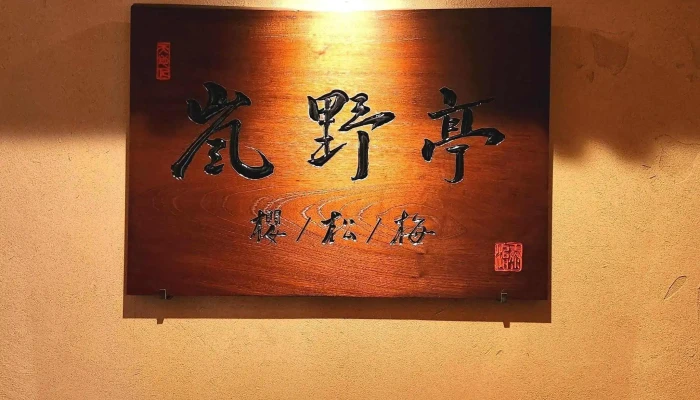 嵐野亭
櫻/松/梅